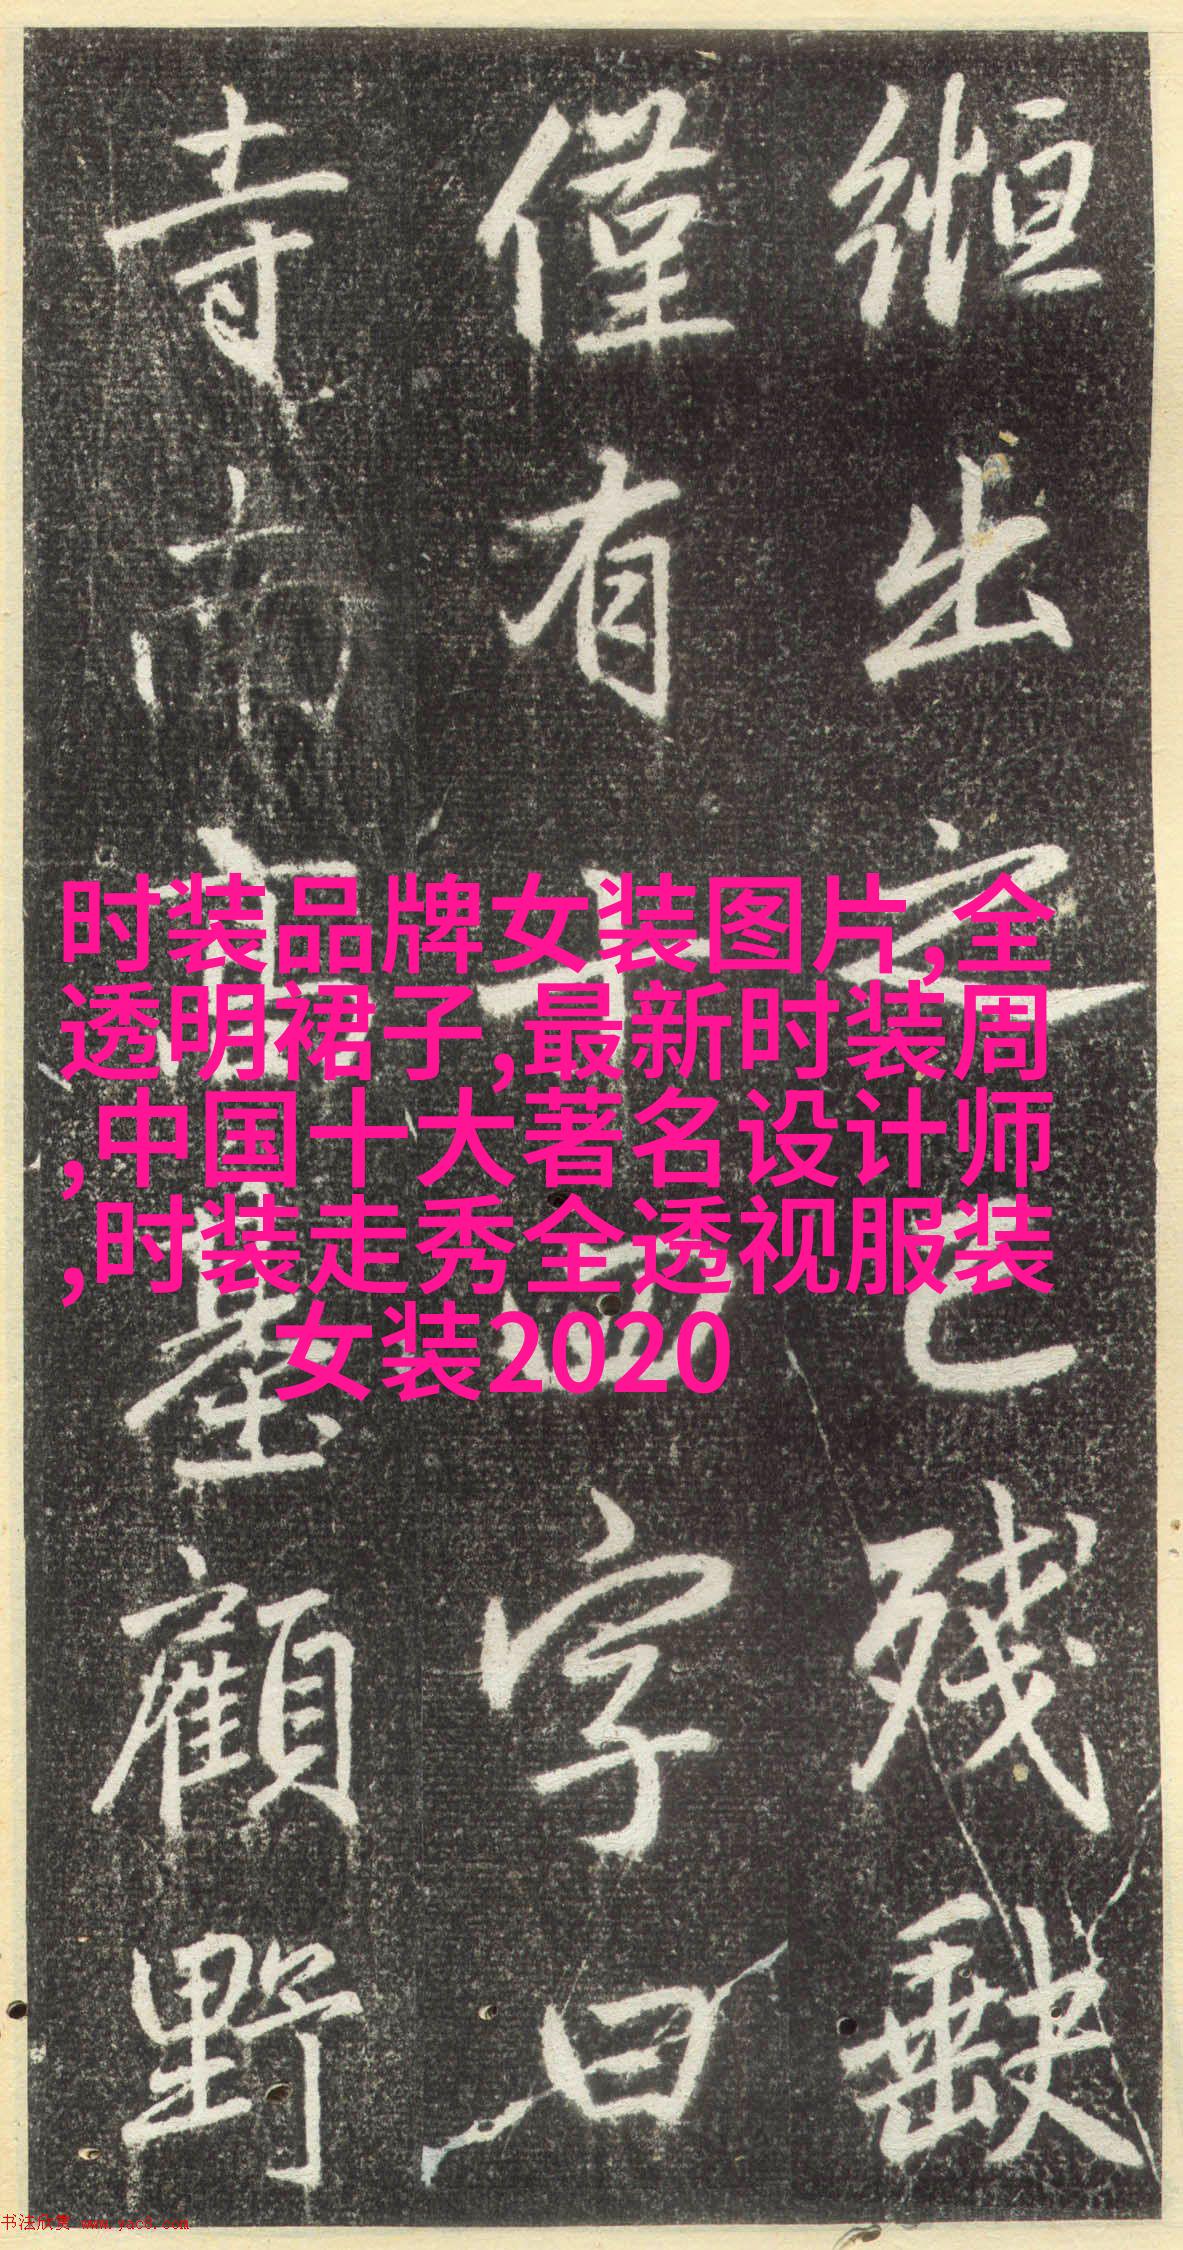 出之已殘缺
僅有十四字曰
寺南高基顧野
时装品牌女装图片,全
透明裙子,最新时装周
,中国十大著名设计师
,时装走秀全透视服装
女装2020
书法欣赏 www.yac8.com